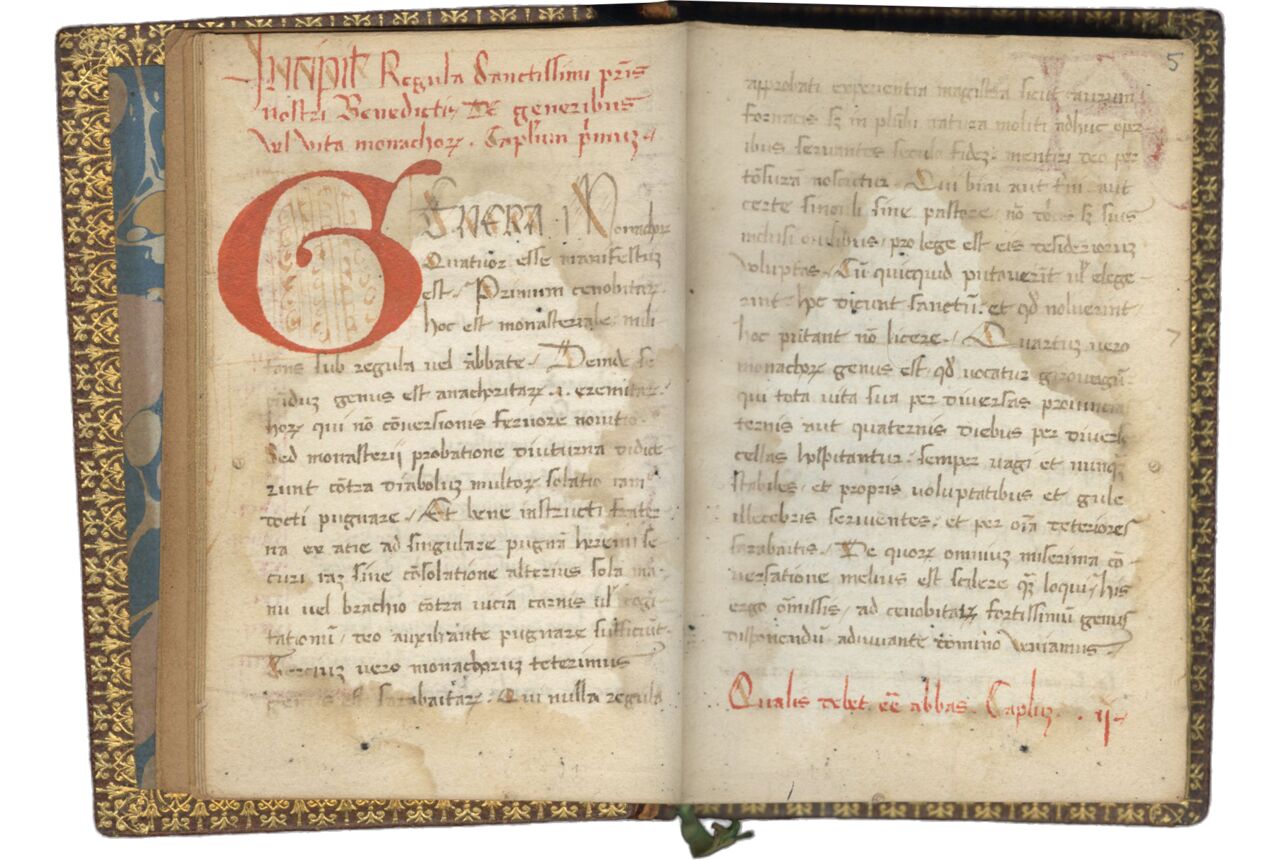 Incipit Regula Sanctissimi pr̄is
nostri Benedicti. De generibus
vel vita monachoꝝ. Capl'um p'muꝫ.
GENERA Monachoꝝ
Quatuor esse manifestuꝫ
est. Primum cenobitaꝝ
hoc est monasteriale, mili
tans sub regula uel abbate. Deinde se
cūduꝫ genus est anachoritaꝝ .i. eremitaꝝ.
hoꝝ qui nō cōversionis fervore novitio.
Sed monasterij probatione diuturna didice
runt cōtra diaboluꝫ multoꝝ solatio iam
docti pugnare. Et bene instructi frater
na ex acie ad singulare pugnā heremi se
curi iaꝫ sine cōsolatione alterius sola ma
nu vel brachio cōtra vicia carnis ul' cogi
tationū, deo auxiliante pugnare sufficiūt.
Terciuꝫ vero monachoruꝫ teterimuꝫ
genus est sarabaitaꝝ. Qui nulla regula
5
approbati experientia magistra sicut aurum
fornacis sꝫ in plūbi natura moliti adhuc oper
ibus servantes seculo fideꝫ. mentiri deo per
tōsurā noscutur. Qui bini aut t'ni aut
certe singuli sine pastore, nō d'cis sꝫ suis
inclusi ovilibus, pro lege est eis desiderioruꝫ
voluptas. Cū quicquid putaverīt ul' elege
rint, hoc dicunt sanctū. et qd̄ noluerint
hoc putant nō licere. Quartuꝫ vero
monachoꝝ genus est, qd̄ vocatur girovagū.
qui tota vita sua per diversas provincias
ternis aut quaternis diebus per diversꝫ
cellas hospitantur. semper vagi et nunqꝫ
stabiles, et propris voluptatibus et gule
illecebris servientes, et per oīa deteriores
sarabaitis. De quoꝝ omniuꝫ miserima cō
versatione melius est scilere qꝫ loqui, his
ergo ōmissis, ad cenobitaꝝ fortissimū genus
disponendū, adiuvante domino veniamus.
Qualis debet eē abbas. Capluꝫ. .ij.